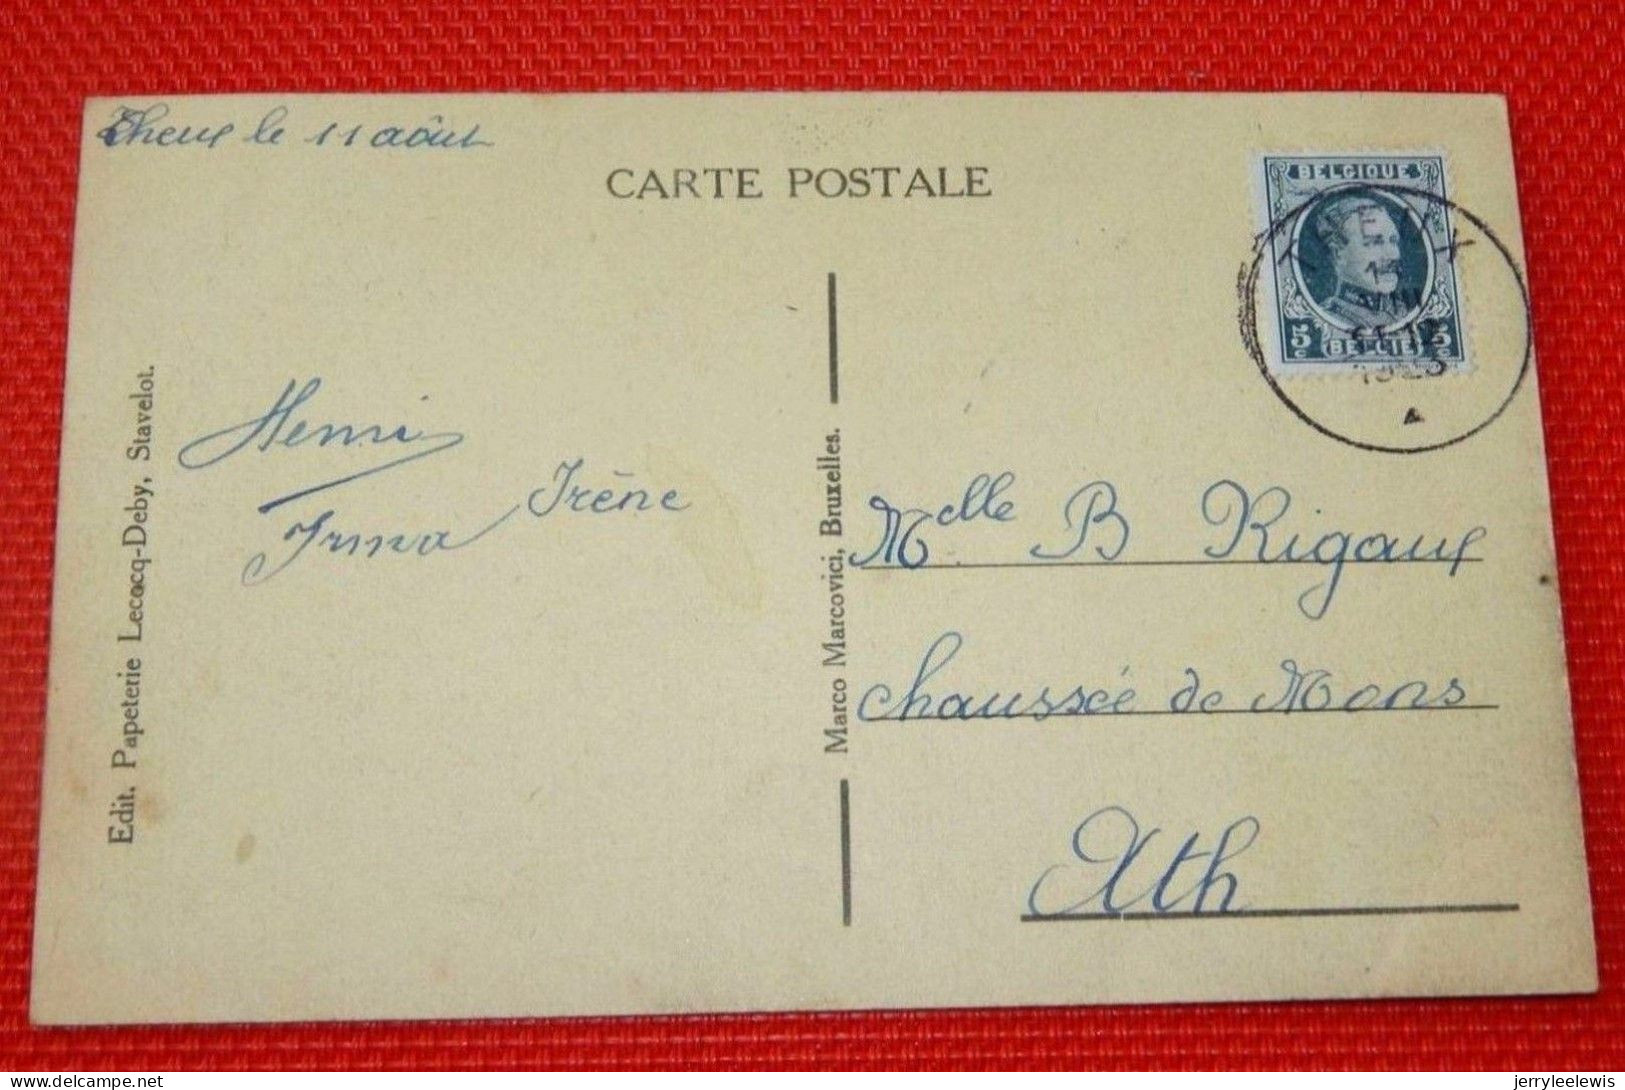 Theux le 11 août
CARTE POSTALE
BELGIQUE
5c 5c
BELGIE
THEUX
VIII
11-12
Henri
Irma Irène
Melle B Rigaux
Chaussée de Mons
Ath
Edit. Papeterie Lecocq-Deby, Stavelot.
Marco Marcovici, Bruxelles.
delcampe.net
jerryleelewis